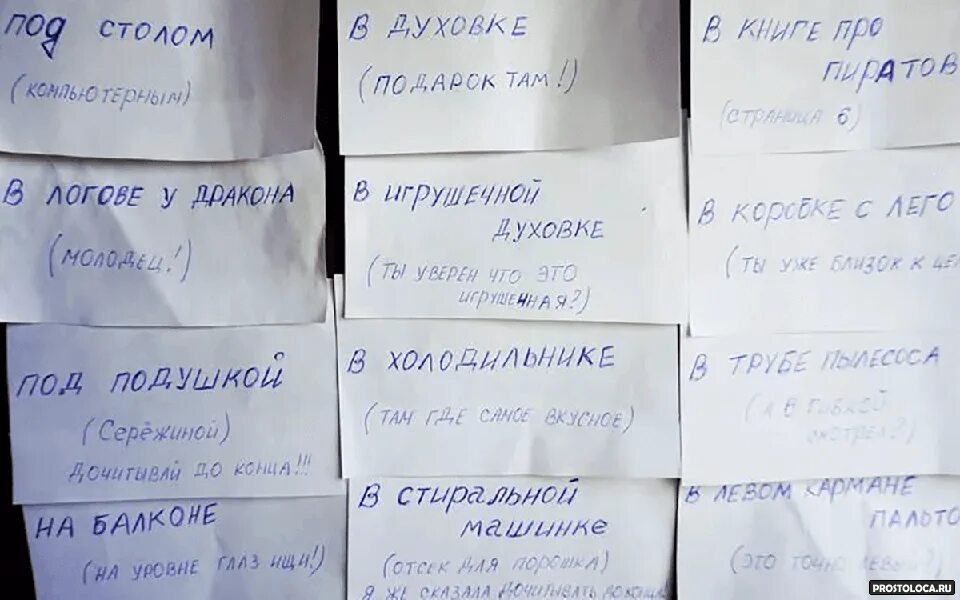 ПОД СТОЛОМ
(КОМПЬЮТЕРНЫМ)
В ЛОГОВЕ У ДРАКОНА
(МОЛОДЕЦ!)
ПОД ПОДУШКОЙ
(СЕРЁЖИНОЙ)
ДОЧИТЫВАЙ ДО КОНЦА!!!
НА БАЛКОНЕ
(НА УРОВНЕ ГЛАЗ ИЩИ!)
В ДУХОВКЕ
(ПОДАРОК ТАМ!)
В ИГРУШЕЧНОЙ
ДУХОВКЕ
(ТЫ УВЕРЕН ЧТО ЭТО
ИГРУШЕННАЯ?)
В ХОЛОДИЛЬНИКЕ
(ТАМ ГДЕ САМОЕ ВКУСНОЕ)
В СТИРАЛЬНОЙ
МАШИНКЕ
(ОТСЕК ДЛЯ ПОРОШКА)
Я ЖЕ СКАЗАЛА ДОЧИТЫВАТЬ ДО
В КНИГЕ ПРО
ПИРАТОВ
(СТРАНИЦА 6)
В КОРОБКЕ С ЛЕГО
(ТЫ УЖЕ БЛИЗОК К ЦЕЛ
В ТРУБЕ ПЫЛЕСОСА
(А В ГИБКОЙ
СМОТРЕЛ?)
В ЛЕВОМ КАРМАНЕ
ПАЛЬТО
(ЭТО ТОЧНО ЛЕВЫЙ?)
PROSTOLOCA.RU